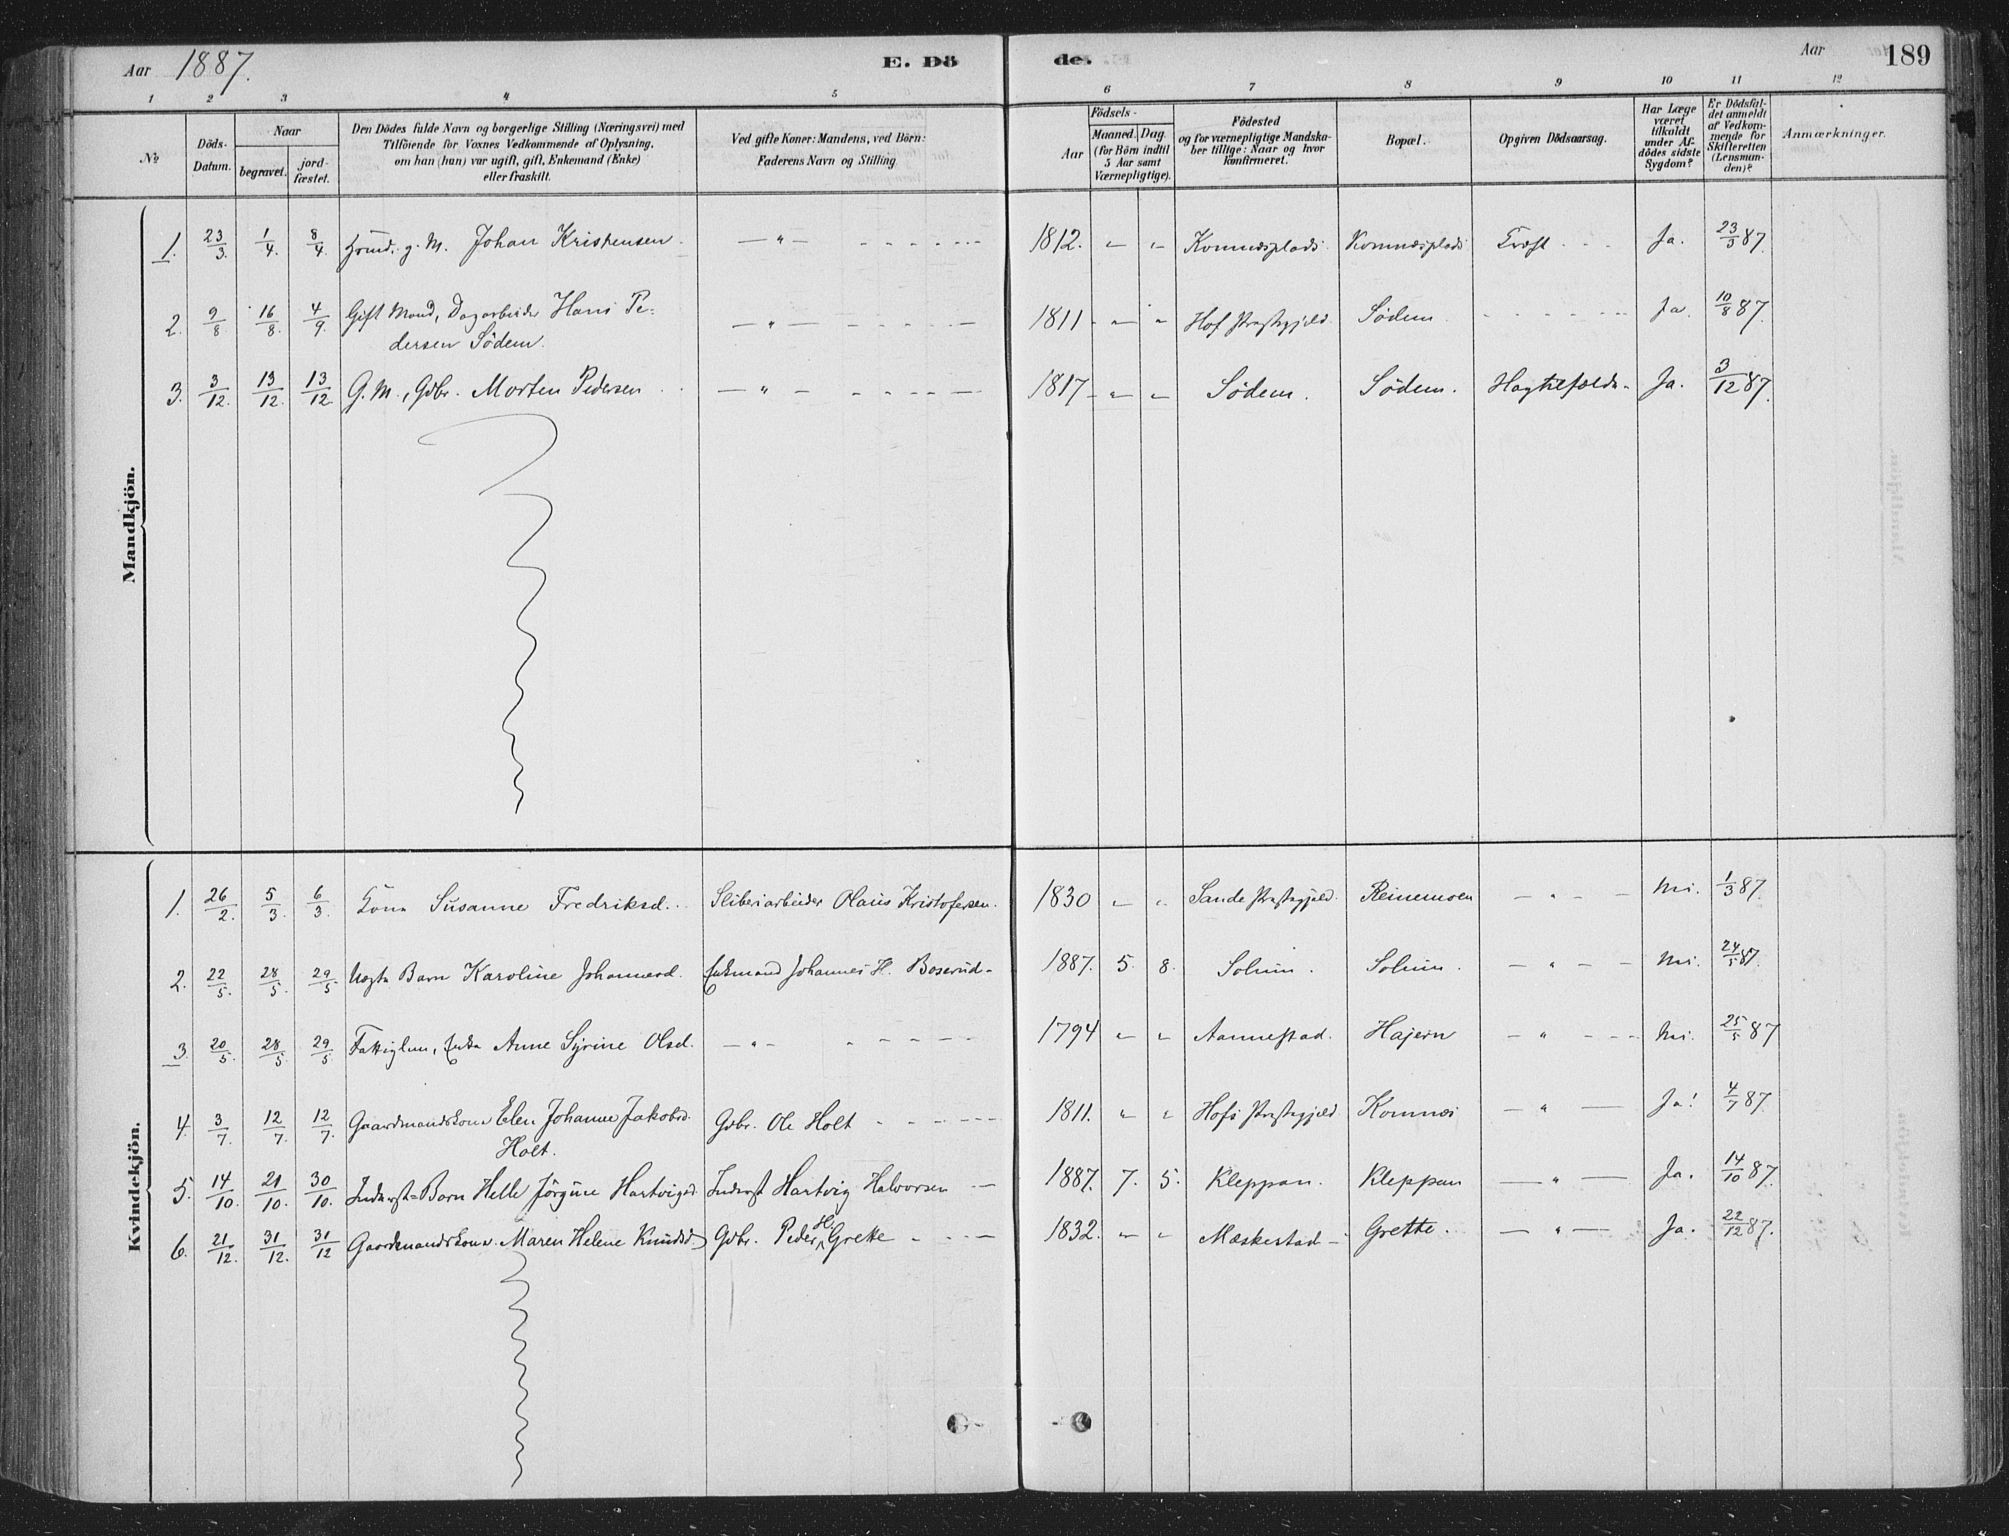 Aar 1887. E. Dö de. Aar 189
1 2 3 4 5 6 7 8 9 10 11 12
№
Döds-Datum.
Naar
begravet.
jord-fæstet.
Den Dödes fulde Navn og borgerlige Stilling (Næringsvei) med
Tilföiende for Voxnes Vedkommende af Oplysning,
om han (hun) var ugift, gift, Enkemand (Enke)
eller fraskilt.
Ved gifte Koner: Mandens, ved Börn:
Faderens Navn og Stilling
Födsels-
Aar
Maaned. Dag
(for Börn indtil
5 Aar samt
Værnepligtige).
Födested
og for værnepligtige Mandska-
ber tillige: Naar og hvor
konfirmeret.
Bopæl.
Opgiven Dödsaarsag.
Har Læge
været
tilkaldt
under Af-
dödes sidste
Sygdom?
Er Dödsfal-
det anmeldt
af Vedkom-
mende for
Skifteretten
(Lensman-
den)?
Anmærkninger.
Mandkjön.
1. 23/3. 1/4. 8/4. g. M. Johan Kristensen — " — 1812. " " Komnæsplads Komnæsplads Ja. 23/3 87.
2. 9/8 16/8. 4/9. Gift Mand, Dagarbeider Hans Pe- — " — 1811 " " Hof Præstegjeld Södem Ja. 10/8 87.
dersen Södem.
3. 3/12. 13/12. 13/12. G. M., Gdbr. Morten Pedersen — " — 1817 " " Södem. Södem. Ja. 3/12 87.
Kvindekjön.
1. 26/2. 5/3. 6/3. Kone Susanne Fredriksd. Sliberiarbeider Olaus Kristofersen. 1830 " " Sande Præstegjeld. Reinemoen — " — Nei. 1/3 87.
2. 22/5. 28/5. 29/5 Barn Karoline Johannesd. Enkemand Johannes H. Boserud 1887. 5. 8. Solum. Solum. — " — Nei. 24/5 87.
3. 20/5. 28/5. 29/5. Fattiglem, Enke Anne Syrine Olsd. — " — 1794 " " Aannestad. Hajern — " — Nei. 25/5 87
4. 3/7. 12/7. 12/7. Gaardmandskone Elen Johanne Jakobsd. Gdbr. Ole Holt 1811. " " Hofs Præstegjeld Komnes — " — Ja! 4/7 87.
Holt.
5. 14/10. 21/10. 30/10. Inderst-Barn Helle Jörgine Hartvigsd. Inderst Hartvig Halvorsen — 1887. 7. 5. Kleppan. Kleppan — " — Ja. 14/10 87.
6. 21/12. 31/12. 31/12 Gaardmandskone Maren Helene Knudsd Gdbr. Peder H. Grette 1832. " " Mæskestad — Grette. — " — Ja. 22/12 87.